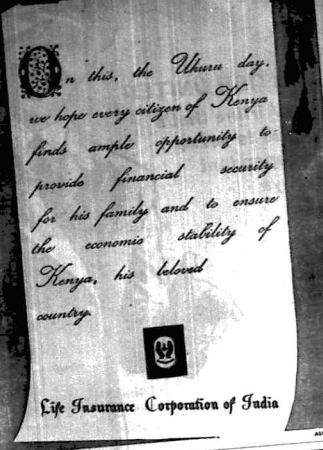 On this, the Uhuru day,
we hope every citizen of Kenya
finds ample opportunity to
provide financial security
for his family and to ensure
the economic stability of
Kenya, his beloved
country.
Life Insurance Corporation of India